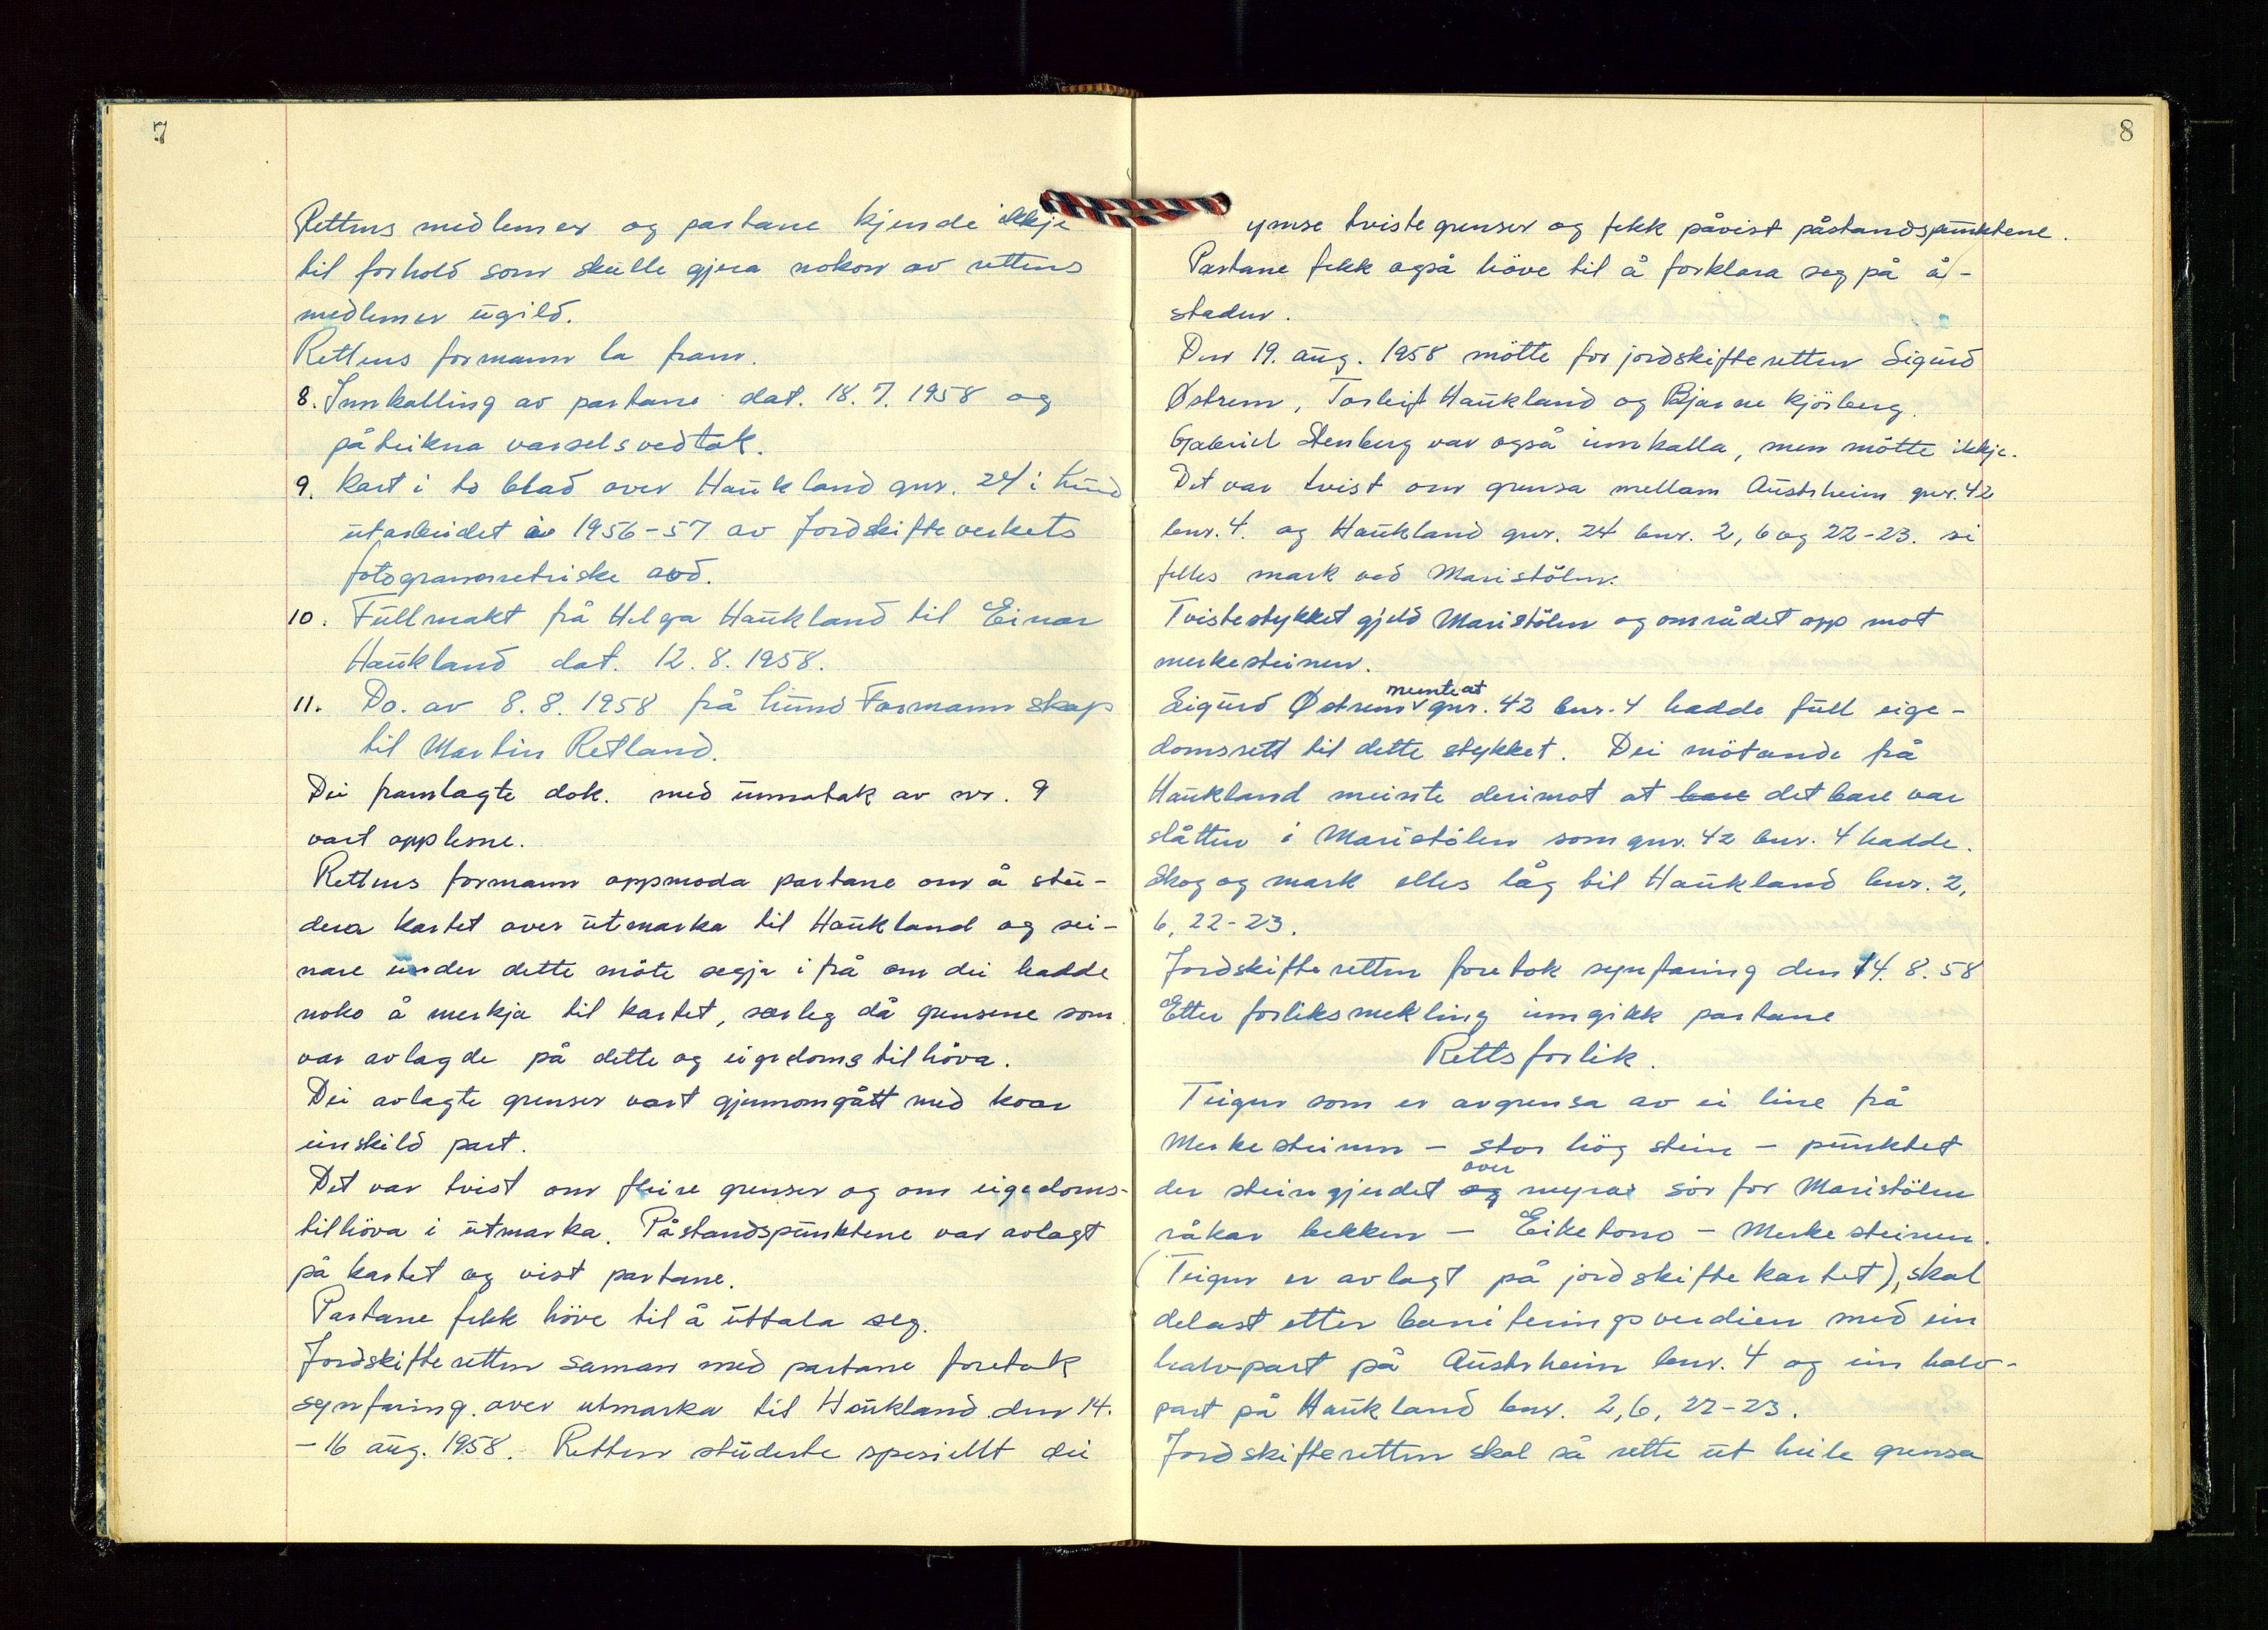 7
Rettens medlemer og partane kjende ikkje
til forhold som skulle gjera nokon av rettens
medlemer ugild.
Rettens formann la fram.
8. Innkalling av partane dat. 18.7.1958 og
påteikna varselsvedtak.
9. Kart i to blad over Haukland gnr. 24 i Lund
utarbeidet i 1956-57 av Jordskifteverkets
fotogrammetriske avd.
10. Fullmakt frå Helga Haukland til Einar
Haukland dat. 12.8.1958.
11. Do. av 8.8.1958 frå Lund Formannskap
til Martin Retland.
Dei framlagte dok. med unnatak av nr. 9
vart opplesne.
Rettens formann oppmoda partane om å stu-
dera kartet over utmarka til Haukland og sei-
nare under dette möte segja ifrå om dei hadde
noko å merkja til kartet, særleg då grensene som
var avlagde på dette og eigedomstilhöva.
Dei avlagte grenser vart gjennomgått med kvar
einskild part.
Det var tvist om fleire grenser og om eigedoms-
tilhöva i utmarka. Påstandspunktene var avlagt
på kartet og vist partane.
Partane fekk höve til å uttala seg.
Jordskifteretten saman med partane foretok
synfaring over utmarka til Haukland den 14.
-16 aug. 1958. Retten studerte spesiellt dei
8
ymse tvistegrenser og fekk påvist påstandspunktene.
Partane fekk også höve til å forklara seg på å-
staden.
Den 19. aug. 1958 mötte for jordskifteretten Sigurd
Østrem, Torleif Haukland og Bjarne Kjörberg.
Gabriel Stenberg var også innkalla, men mötte ikkje.
Det var tvist om grensa mellam Austrheim gnr. 42
bnr. 4. og Haukland gnr. 24 bnr. 2, 6 og 22-23. si
felles mark ved Maristölen.
Tvistestykket gjeld Maristölen og området opp mot
merkesteinen.
Sigurd Østrem meinte at gnr. 42 bnr. 4 hadde full eige-
domsrett til dette stykket. Dei mötande frå
Haukland meinte derimot at bare det bare var
slåtten i Maristölen som gnr. 42 bnr. 4 hadde.
Skog og mark elles låg til Haukland bnr. 2,
6, 22-23.
Jordskifteretten foretok synfaring den 14.8.58
Etter forliksmekling inngikk partane
Rettsforlik.
Teigen som er avgrensa av ei line frå
Merkesteinen - stor hög stein - punktet
der steingjerdet og over myra sör for Maristölen
råkar bekken - Eiketono - Merkesteinen.
(Teigen er avlagt på jordskiftekartet), skal
delast etter boniteringsverdien med ein
halvpart på Austrheim bnr. 4 og ein halv-
part på Haukland bnr. 2, 6, 22-23.
Jordskifteretten skal så rette ut heile grensa